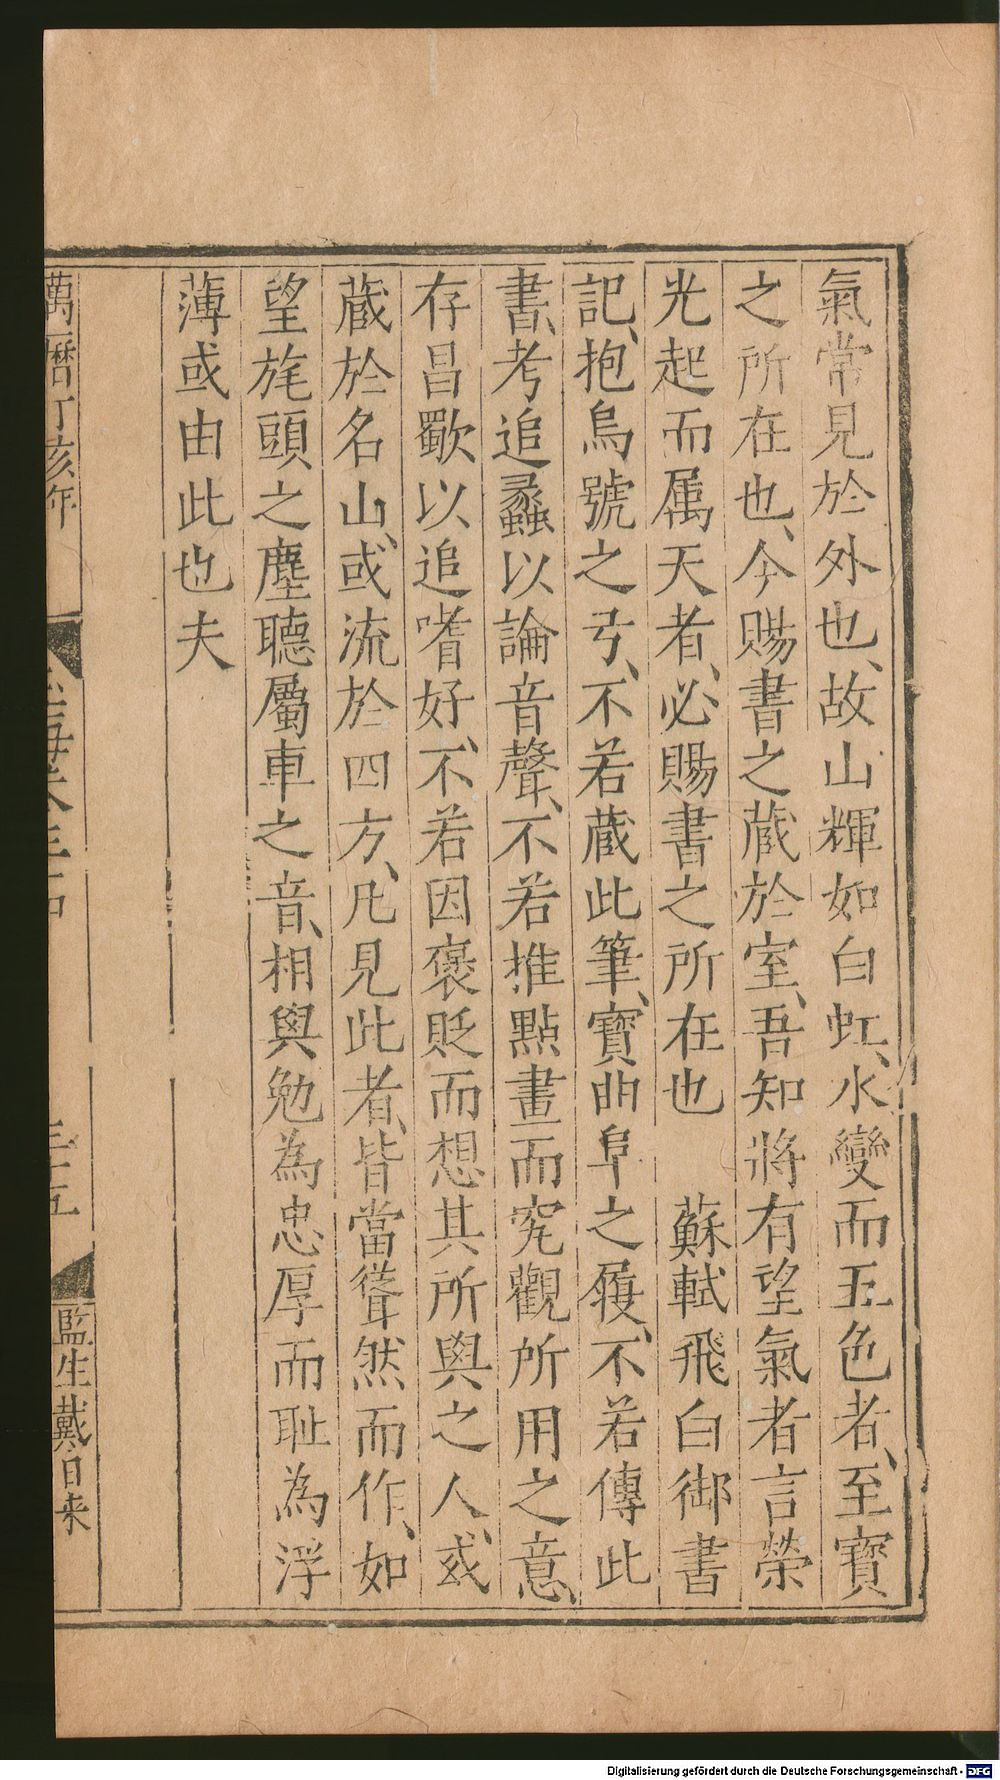 氣常見於外也、故山輝如白虹、水變而五色者、至寶
之所在也、今賜書之藏於室、吾知將有望氣者言榮
光起而属天者、必賜書之所在也　蘇軾飛白御書
記、抱烏號之弓、不若藏此筆、寶曲阜之履、不若傳此
書、考追蠡以論音聲、不若推點畫而究觀所用之意、
存昌歜以追嗜好、不若因褒貶而想其所與之人、或
藏於名山、或流於四方、凡見此者、皆當聳然而作、如
望旄頭之塵聽屬車之音、相與勉為忠厚而耻為浮
薄或由此也夫
萬曆丁亥年
玉海卷三十四
三十五
監生戴日来
Digitalisierung gefördert durch die Deutsche Forschungsgemeinschaft - DFG